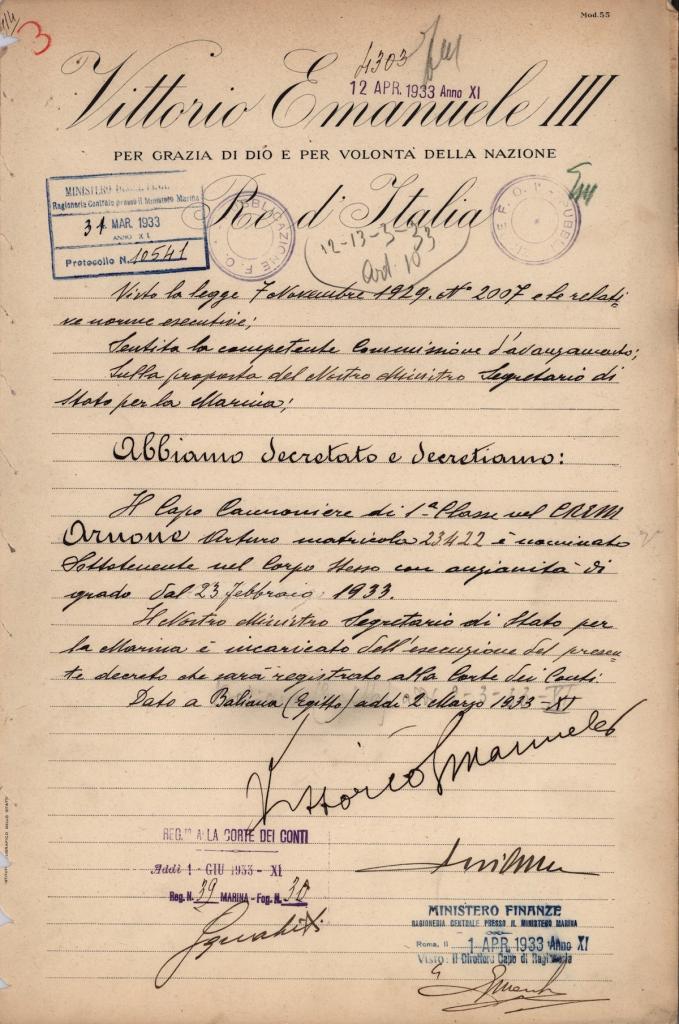 Mod. 55
3
4303
12 APR. 1933 Anno XI
Vittorio Emanuele III
PER GRAZIA DI DIO E PER VOLONTÀ DELLA NAZIONE
Re d'Italia
MINISTERO
Ragioneria Centrale presso il Ministero Marina
31 MAR. 1933
ANNO XI
Protocollo N. 10541
12-13-3-33
Visto la legge 7 Novembre 1929. N° 2007 e le relati-
ve norme esecutive;
Sentita la competente Commissione d'avanzamento;
Sulla proposta del Nostro Ministro Segretario di
Stato per la Marina;
Abbiamo decretato e decretiamo:
Il Capo Cannoniere di 1ª Classe nel CREM
Arnone Arturo matricola 23422 è nominato
Sottotenente nel Corpo stesso con anzianità di
grado dal 23 febbraio 1933.
Il Nostro Ministro Segretario di Stato per
la Marina è incaricato dell'esecuzione del presen-
te decreto che sarà registrato alla Corte dei Conti.
Dato a Baliana (Egitto) addì 2 Marzo 1933-XI
Vittorio Emanuele
REG.TO ALLA CORTE DEI CONTI
Addì 1 - GIU 1933 - XI
Reg. N. 39 MARINA - Fog. N. 30
MINISTERO FINANZE
RAGIONERIA CENTRALE PRESSO IL MINISTERO MARINA
Roma, li 1 APR. 1933 Anno XI
Visto: Il Direttore Capo di Ragioneria